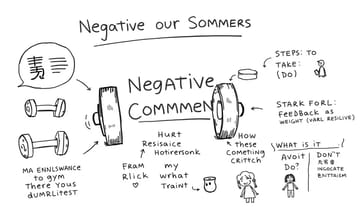 Negative our Sommers
Negative
Commmen
STEPS: TO
TAKE:
(DO)
STARK FORL:
FeedBack as
WEIGHT (VARL RESILIVE)
MA ENNLSWANCE
to gym
There Yous
duMRLitesT
Hurt
Resisaice
Hotirersonk
FRam
RLick
my
wrhat
Traint
How
these
Cometing
Crittch
WHAT IS IT
Avoit
Do?
DON'T
INGOCATE
ENTTAIEM